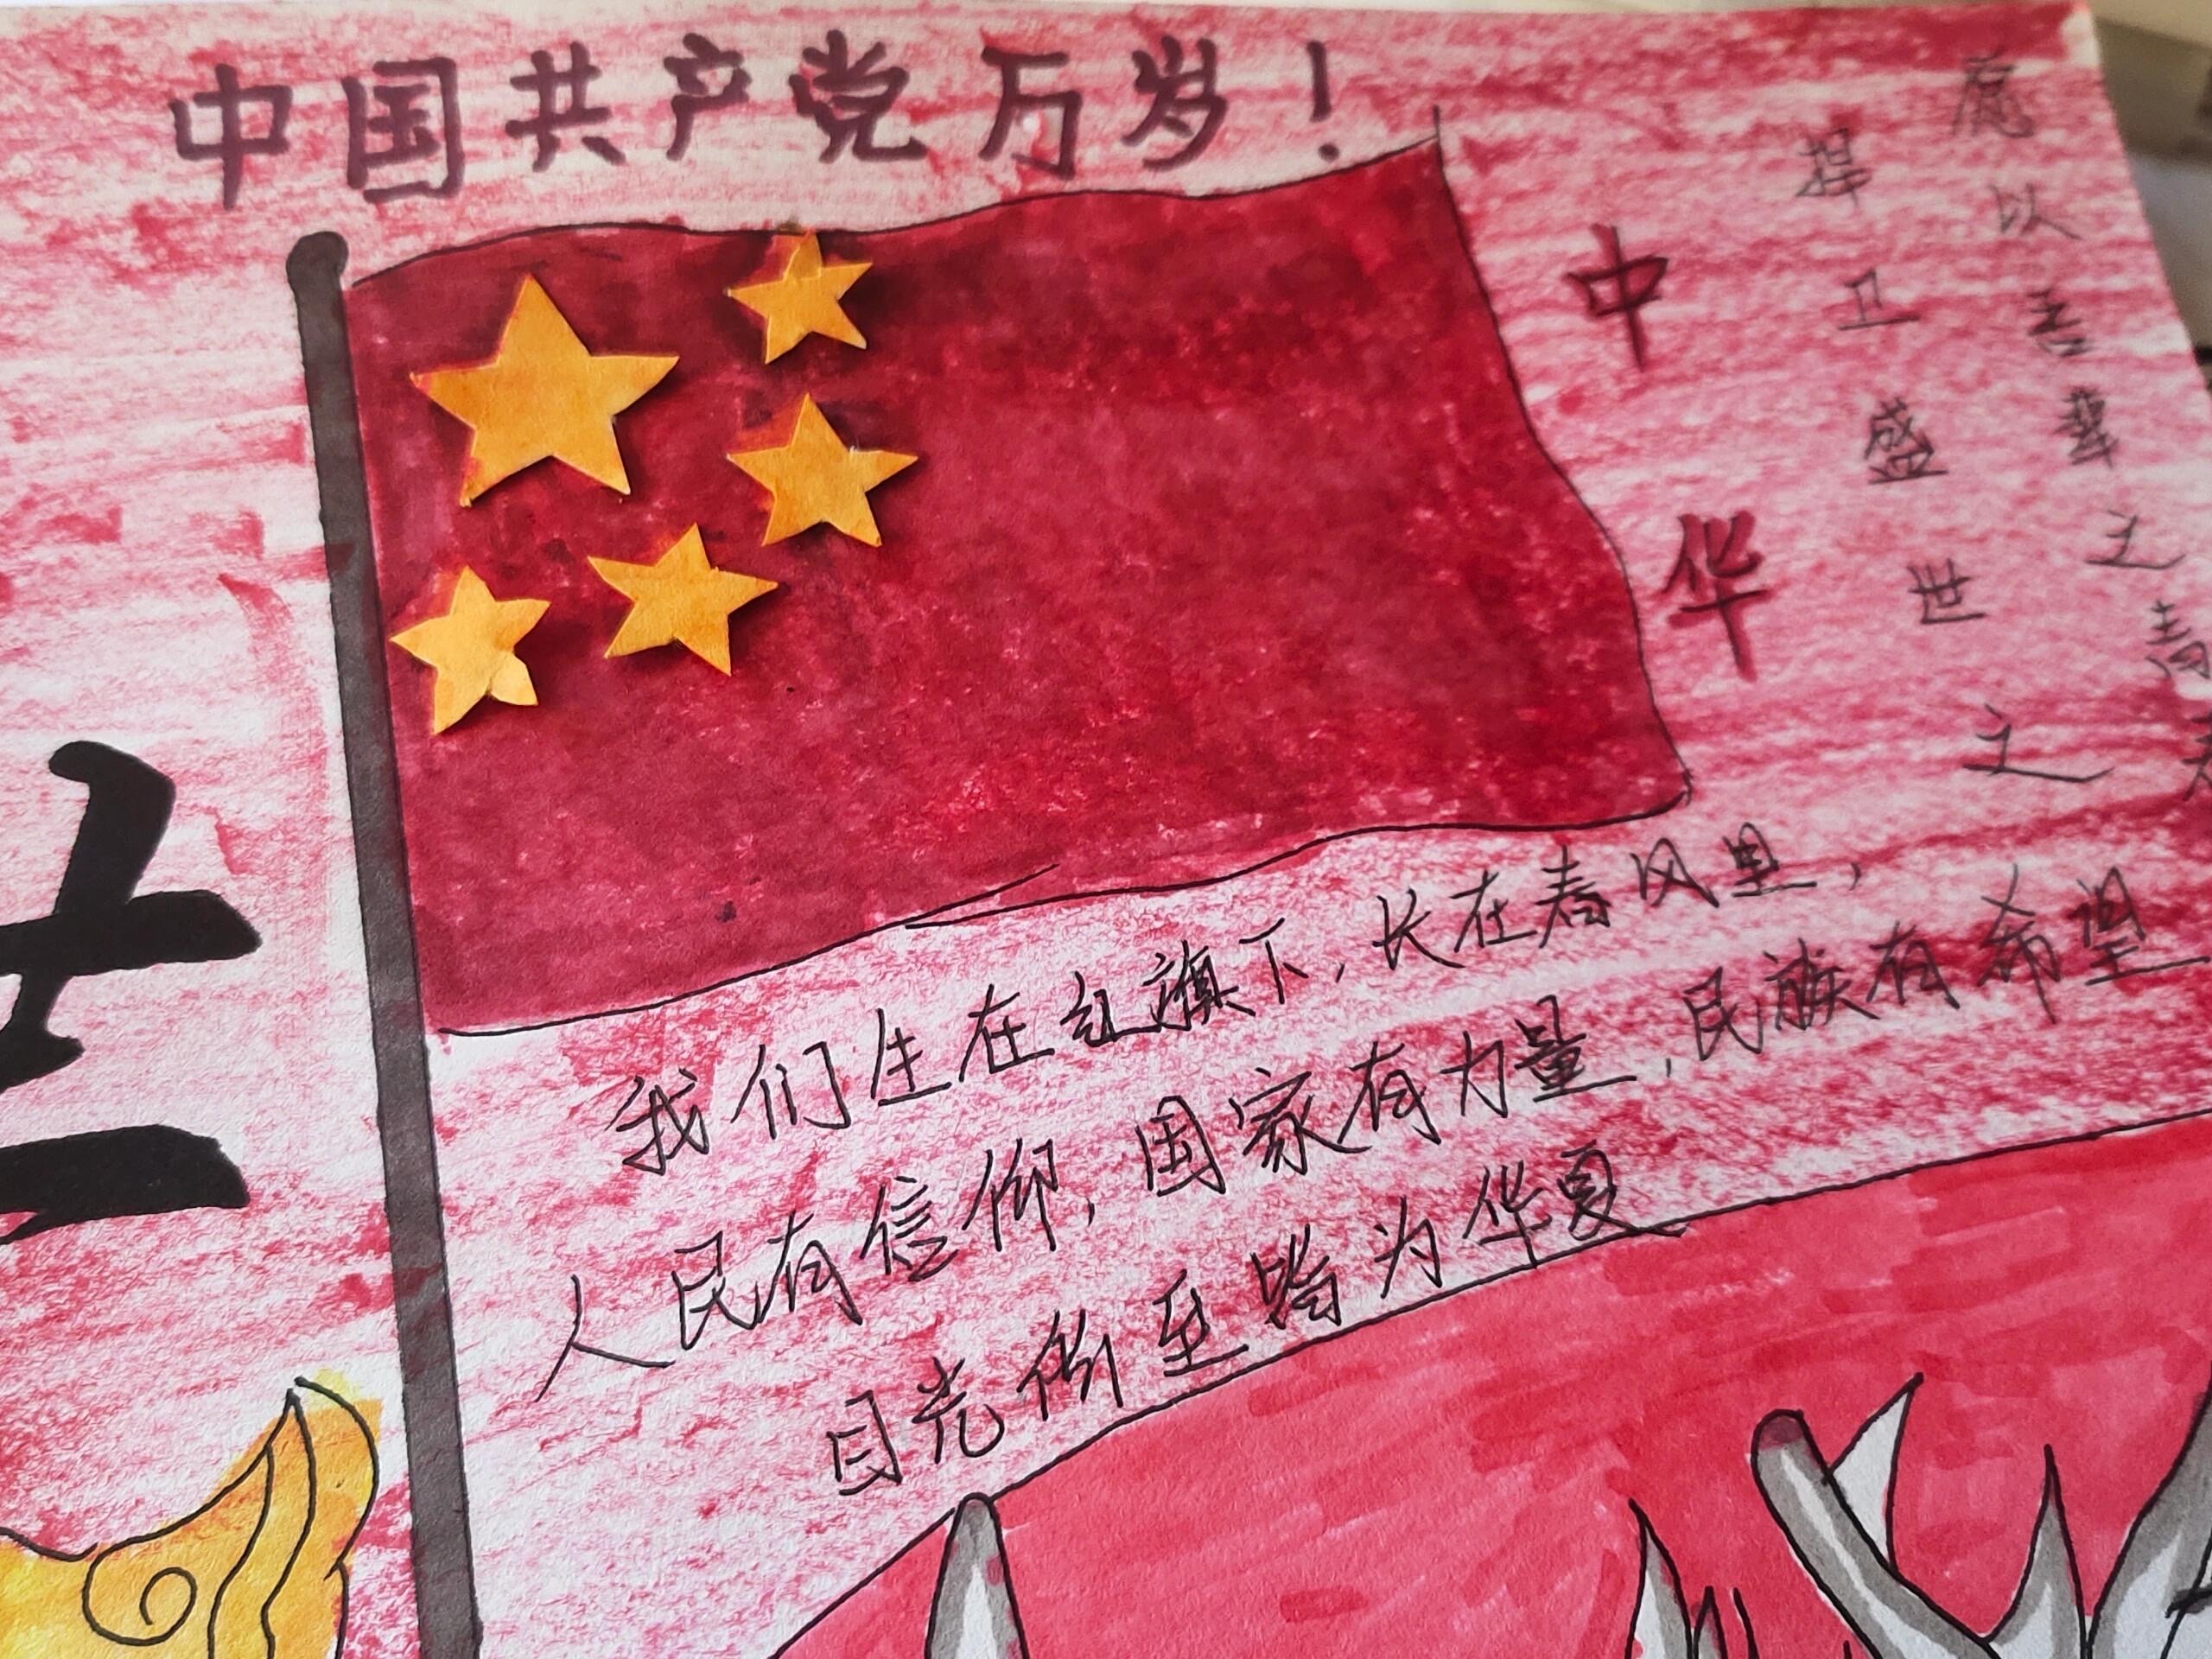 中国共产党万岁！
愿以吾辈之青春
捍卫盛世之
中华
我们生在红旗下，长在春风里，
人民有信仰，国家有力量，民族有希望
目光所至皆为华夏